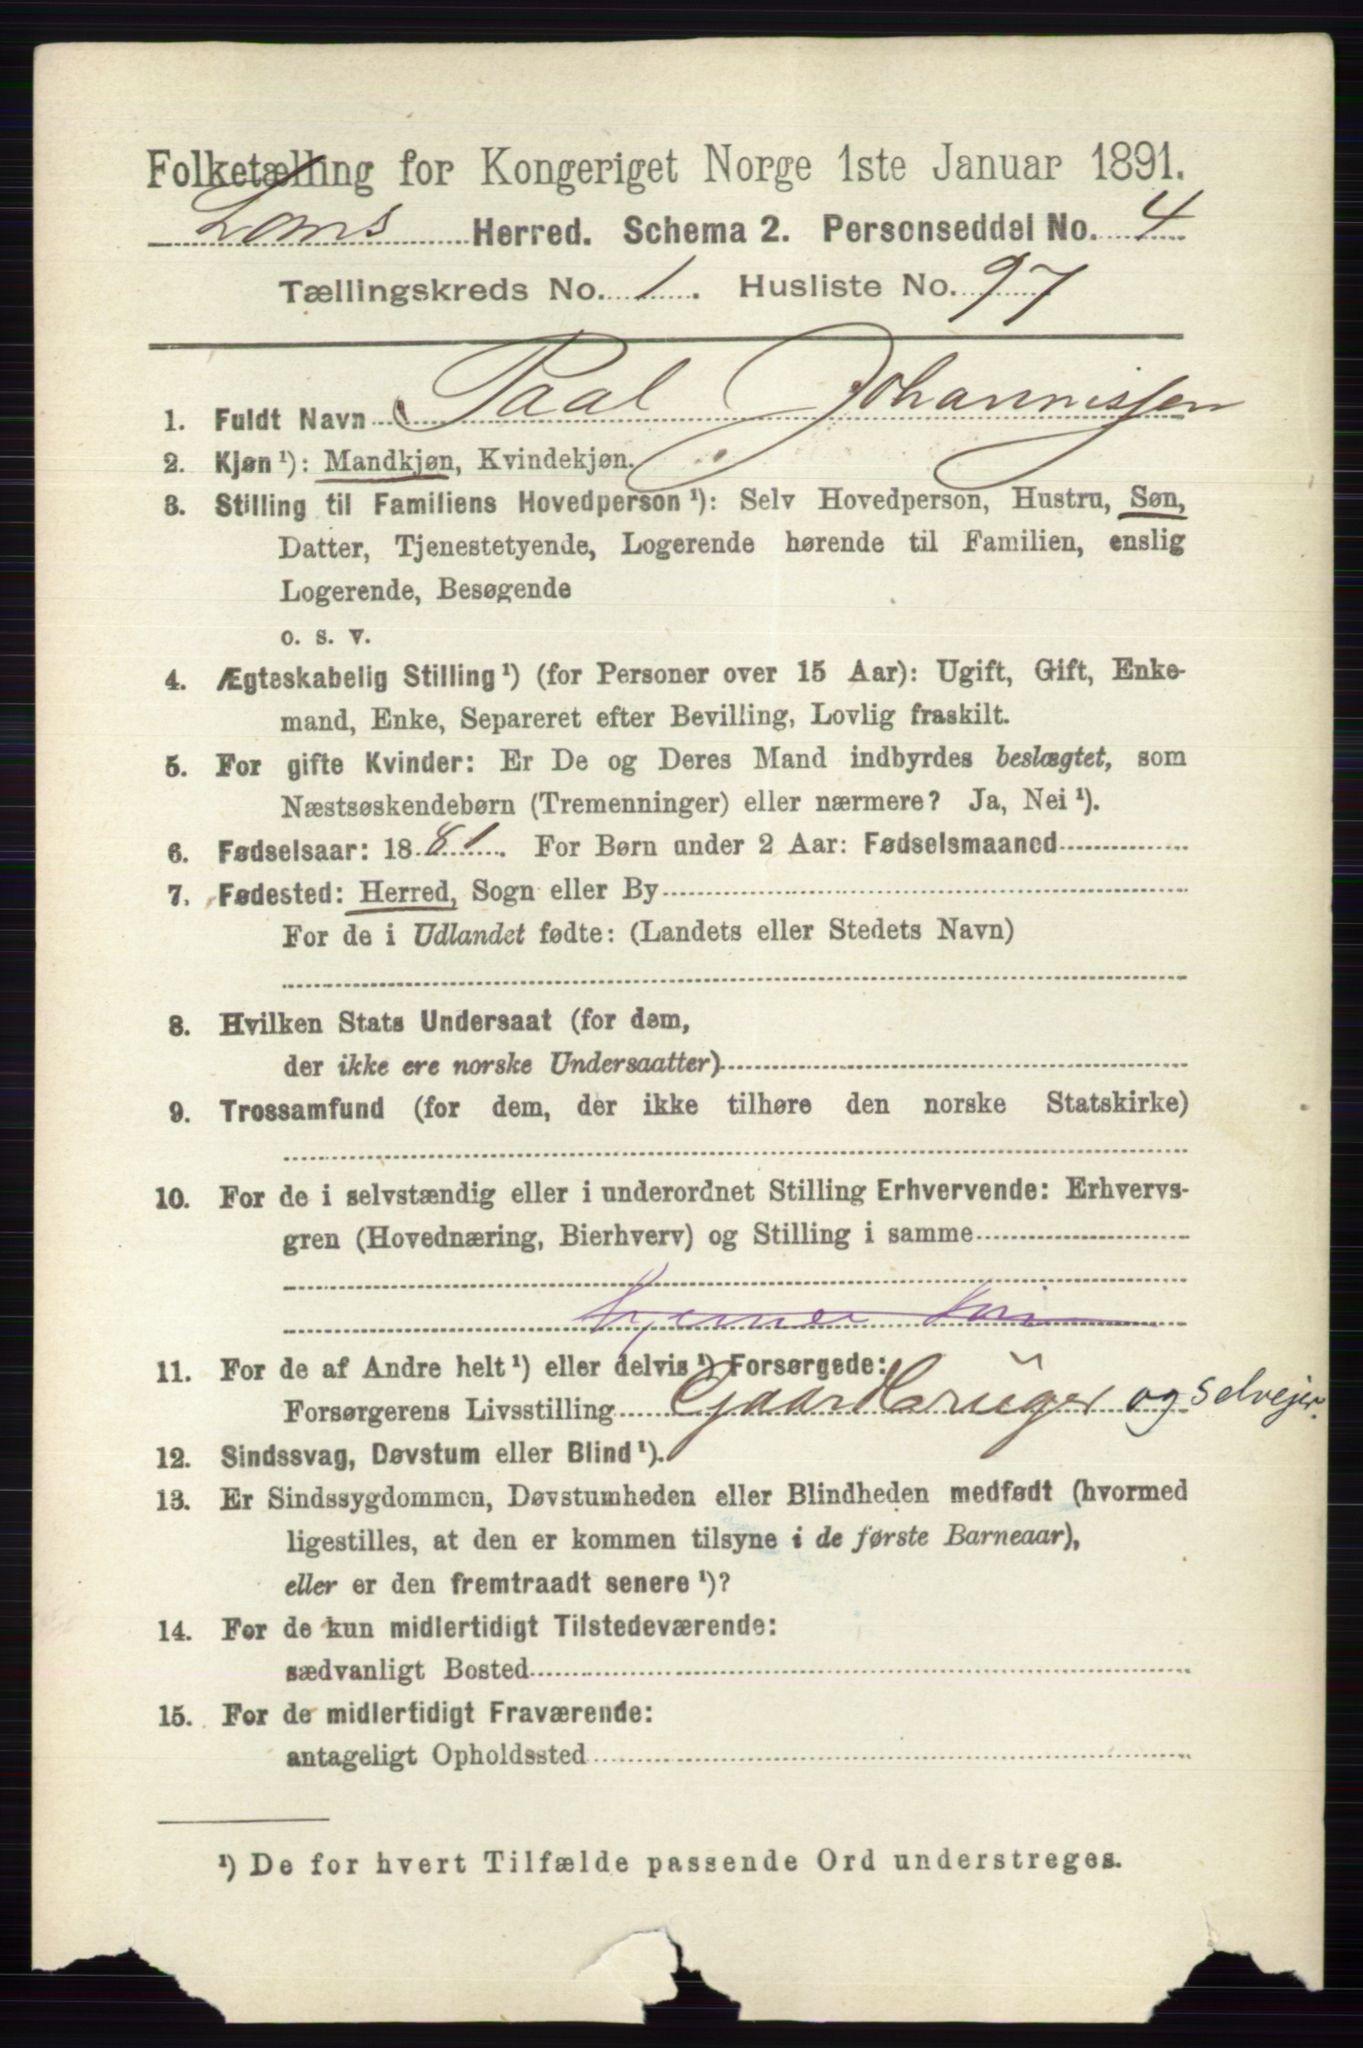 Folketælling for Kongeriget Norge 1ste Januar 1891.
Loms Herred. Schema 2. Personseddel No. 4
Tællingskreds No. 1. Husliste No. 97
1. Fuldt Navn Paal Johannissen
2. Kjøn¹): Mandkjøn, Kvindekjøn.
3. Stilling til Familiens Hovedperson¹): Selv Hovedperson, Hustru, Søn,
Datter, Tjenestetyende, Logerende hørende til Familien, enslig
Logerende, Besøgende
o. s. v.
4. Ægteskabelig Stilling¹) (for Personer over 15 Aar): Ugift, Gift, Enke-
mand, Enke, Separeret efter Bevilling, Lovlig fraskilt.
5. For gifte Kvinder: Er De og Deres Mand indbyrdes beslægtet, som
Næstsøskendebørn (Tremenninger) eller nærmere? Ja, Nei¹).
6. Fødselsaar: 1881. For Børn under 2 Aar: Fødselsmaaned
7. Fødested: Herred, Sogn eller By
For de i Udlandet fødte: (Landets eller Stedets Navn)
8. Hvilken Stats Undersaat (for dem,
der ikke ere norske Undersaatter)
9. Trossamfund (for dem, der ikke tilhøre den norske Statskirke)
10. For de i selvstændig eller i underordnet Stilling Erhvervende: Erhvervs-
gren (Hovednæring, Bierhverv) og Stilling i samme
11. For de af Andre helt¹) eller delvis¹) Forsørgede:
Forsørgerens Livsstilling Gaardbrüger og selvejer.
12. Sindssvag, Døvstum eller Blind¹).
13. Er Sindssygdommen, Døvstumheden eller Blindheden medfødt (hvormed
ligestilles, at den er kommen tilsyne i de første Barneaar),
eller er den fremtraadt senere¹)?
14. For de kun midlertidigt Tilstedeværende:
sædvanligt Bosted
15. For de midlertidigt Fraværende:
antageligt Opholdssted
¹) De for hvert Tilfælde passende Ord understreges.